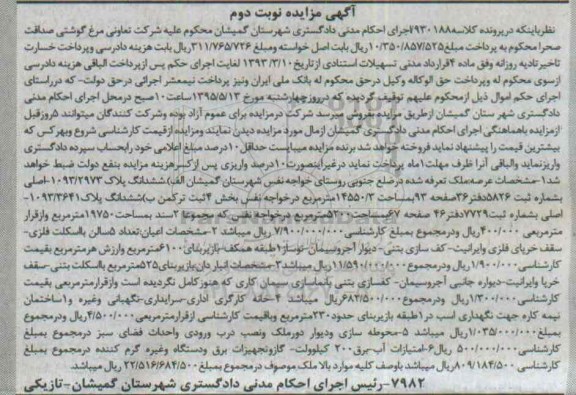 آگهی مزایده نوبت دوم
نظر باینکه در پرونده کلاسه ۷۹۳۰۱۸۸ اجرای احکام مدنی دادگستری شهرستان گمیشان محکوم علیه شرکت تعاونی مرغ گوشتی صداقت
صحرا محکوم به پرداخت مبلغ ۱۰/۳۵۰/۸۵۷/۵۲۵ ریال بابت اصل خواسته ومبلغ ۳۱۱/۷۶۵/۷۲۶ ریال بابت هزینه دادرسی وپرداخت خسارت
تاخیر تادیه روزانه وفق ماده ۴ قرارداد مدنی تسهیلات استنادی از تاریخ ۱۳۹۳/۳/۱۰ لغایت اجرای حکم پس از پرداخت الباقی هزینه دادرسی
از سوی محکوم له وپرداخت حق الوکاله وکیل درحق محکوم له بانک ملی ایران ونیز پرداخت نیمعشر اجرائی درحق دولت- که درراستای
اجرای حکم اموال ذیل از محکوم علیهم توقیف گردیده که بروز چهارشنبه مورخ ۱۳۹۵/۵/۱۳ ساعت ۱۰ صبح درمحل اجرای احکام مدنی
دادگستری شهر ستان گمیشان از طریق مزایده بفروش میرسد شرکت درمزایده برای عموم آزاد بوده وشرکت کنندگان میتوانند ۵ روز قبل
از مزایده باهماهنگی اجرای احکام مدنی دادگستری گمیشان از مال مورد مزایده دیدن نمایند ومزایده از قیمت کارشناسی شروع وبهر کس که
بیشترین قیمت را پیشنهاد نماید فروخته خواهد شد برنده مزایده میبایست حداقل ۱۰ درصد مبلغ اعلامی خود رابحساب سپرده دادگستری
واریز نماید والباقی آنرا ظرف مهلت ۱ ماه پرداخت نماید درغیر اینصورت ۱۰ درصد واریزی پس از کسر هزینه مزایده بنفع دولت ضبط خواهد
شد ۱-مشخصات عرصه ملک تعرفه شده ضلع جنوبی روستای خواجه نفس شهرستان گمیشان الف) ششدانگ پلاک ۱۰۹۳/۲۹۷۳-اصلی
بشماره ثبت ۵۸۲۶ دفتر ۳۶ صفحه ۹۳ بمساحت ۱۴۵۵۰/۳ مترمربع درخواجه نفس بخش ۴ ثبت ترکمن ب) ششدانگ پلاک ۱۰۹۳/۳۶۴۱-
اصلی بشماره ثبت ۷۷۲۹ دفتر ۴۶ صفحه ۶۷ بمساحت ۵۲۰۰ مترمربع درخواجه نفس که مجموعا ۲ سند بمساحت ۱۹۷۵۰ مترمربع وازقرار
مترمربعی ۴۰۰/۰۰۰ ریال ودرمجموع بمبلغ کارشناسی ۷/۹۰۰/۰۰۰/۰۰۰ ریال میباشد ۲-مشخصات اعیان: تعداد ۵ سالن بااسکلت فلزی-
سقف خرپای فلزی وایرانیت- کف سازی بتنی- دیوار آجروسیمان- نوساز ۱ طبقه همکف- بازیربنای ۶۱۰۰ مترمربع وارزش هرمترمربع بقیمت
کارشناسی ۱/۹۰۰/۰۰۰ ریال ودرمجموع ۱۱/۵۹۰/۰۰۰/۰۰۰ ریال میباشد ۳-مشخصات انبار دان بازیربنای ۵۲۵ مترمربع بااسکلت بتنی-سقف
خرپا وایرانیت- دیواره جانبی آجروسیمان- کفسازی بتنی بانماسازی سیمان کاری که هنوز کامل نگردیده است وازقرار مترمربعی بقیمت
کارشناسی ۱/۳۰۰/۰۰۰ ریال ودرمجموع ۶۸۲/۵۰۰/۰۰۰ ریال میباشد ۴-خانه کارگری اداری-سرایداری-نگهبانی وغیره و ۱ ساختمان
نیمه کاره جهت نگهداری اسب در ۱ طبقه بازیربنای حدود ۲۳۰ مترمربع وباقیمت کارشناسی از قرار مترمربعی ۴/۵۰۰/۰۰۰ ریال ودرمجموع
بمبلغ ۱/۰۳۵/۰۰۰/۰۰۰ ریال میباشد ۵-محوطه سازی ودیوار دورملک ونصب درب ورودی واحداث فضای سبز درمجموع بمبلغ
کارشناسی ۵۰۰/۰۰۰/۰۰۰ ریال ۶-امتیازات آب-برق ۲۰۰ کیلووات- گازوتجهیزات برق ودستگاه وغیره گرم کننده درمجموع بمبلغ
کارشناسی ۸۰۹/۱۸۴/۵۰۰ ریال میباشد باوصف کلیه موارد بالا ملک موصوف درمجموع بمبلغ ۲۲/۵۱۶/۶۸۴/۵۰۰ ریال میباشد.
۷۹۸۲-رئیس اجرای احکام مدنی دادگستری شهرستان گمیشان-تازیکی